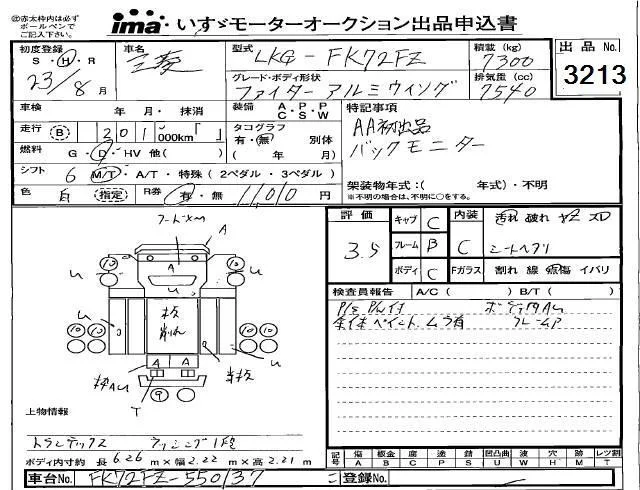 ②赤太枠内は必ず
ボールペンで
ご記入ください。
ima いすゞモーターオークション出品申込書
初度登録 S・H・R 23/8月
車名 三菱
型式 LKG-FK72FZ
積載(kg) 7300
出品No. 3213
グレード・ボディ形状 ファイター アルミウイング
排気量(cc) 7540
車検 年 月・抹消
装備 A・P・P C・S・W
特記事項
AA初出品
バックモニター
走行 B 201,000km「 」
タコグラフ 有・無 別体
( 年 月)
燃料 G・D・HV 他( )
シフト 6 M/T・A/T・特殊(2ペダル・3ペダル)
架装物年式:( 年式)・不明
※不明の場合は、不明に○をする。
色 白 (指定) R券 有・無 11,010円
フートメxm
A
評価 3.5
キャブ C
フレーム B
ボディ C
内装 C
汚れ 破れ ヤブ スレ
シートヘタリ
Fガラス 割れ 線 点傷 イバリ
検査員報告 A/C( ) B/T( )
P/g P/W付
ボデー内AU
本体ペイントムラ有
フレームP
10 10 A U U
板 削れ
10 10 10 10
A A
枠AU
T
9
上物情報
トランテックス
ラッシング1段
ボディ内寸約 長6.26m×幅2.22m×高2.21m
記号 傷A 板金B 腐C 塗P 錆S 凹凸曲U 波W 穴H 跡M レツ割T
車台No. FK72FZ-550137
登録No.